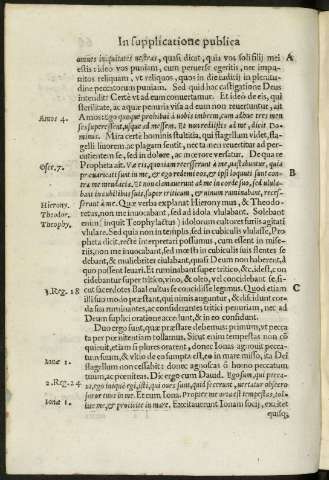 In supplicatione publica
omnes iniquitates vestras, quasi dicat, quia vos soli filij mei
A
estis: ideo vos puniam, cum peruerse egeritis, nec impu-
nitos reliquam, vt reliquos, quos in die iudicij in plenitu-
dine peccatorum puniam. Sed quid hac castigatione Deus
intendit? Certè vt ad eum conuertamur. Et ideo de eis, qui
sterilitate, ac aquæ penuria visa ad eum non reuertuntur, ait
Amos 4.
Amos: Ego quoque prohibui à vobis imbrem, cum adhuc tres men-
ses superessent, vsque ad messem. Et non redistis ad me, dicit Do-
minus. Mira certe hominis stultitia, qui flagellum videt, fla-
gelli liuorem ac plagam sentit, nec ta men reuertitur ad per-
cutientem se, sed in dolore, ac mœrore versatur. De qua re
Osee. 7.
Propheta ait. Væ eis, quoniam recesserunt à me, vastabuntur, quia
præuaricati sunt in me, & ego redemi eos, & ipsi loquuti sunt con-
B
tra me mendacia, Et non clamauerunt ad me in corde suo, sed vlula-
bant in cubilibus suis, super triticum, & vinum ruminabant, reces-
Hierony.
serunt à me. Quæ verba explanat Hieronymus, & Theodo-
Theodor.
retus, non me inuocabant, sed ad idola vlulabant. Solebant
Theophy.
enim (inquit Teophylactus) idolorum cultores furiis agitati
vlulare. Sed quia non in templis, sed in cubiculis vlulasse, Pro-
pheta dicit, recte interpretari possumus, cum essent in mise-
riis, non me inuocabant, sed mœsti in cubiculis suis flentes se
debant, & muliebriter eiulabant, quasi Deum non haberent, à
quo possent leuari. Et ruminabant super tritico, &c. idest, con
cidebantur super tritico, vino, & oleo, vel concidebant se, si-
3. Reg. 18
cut sacerdotes Baal cultus se conscidisse legimus. Quod etiam
C
illi suo modo præstant, qui nimis auguntur, & discidunt cor-
da sua ruminantes, ac considerantes tritici penuriam, nec ad
Deum supplici oratione accedunt, & in eo confidunt.
Duo ergo sunt, quæ præstare debemus: primum, vt pecca
ta per pœnitentiam tollamus. Sicut enim tempestas non cõ
quieuit, etiam si plures orarent, donec Ionas agnouit pecca-
Ionæ 1.
tum suum, & vltio de eo sumpta est, eo in mare misso, ita Dei
flagellum non cessabit: donec agnoscas ô homo peccatum
tuum, ac pœniteas. Dic ergo cum Dauid. Ego sum, qui pecca-
2. Reg. 24
ui, ego iniquè egi, isti, qui oues sunt, quid fecerunt, vertatur obsecro
furor tuus in me. Et cum Iona. Propter me orta est tempestas, tol-
Ionæ 1.
lite me, & proiicite in mare. Excitauerunt Ionam socij, excitet
quisq;